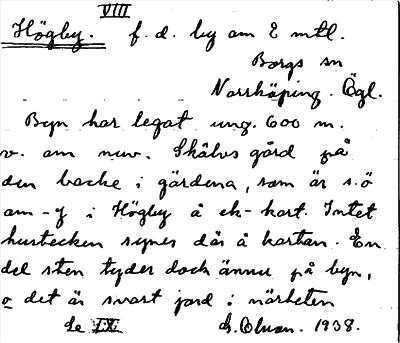 VIII
Högby. f. d. by om 2 mtl.
Borgs sn
Norrköping. Ögl.
Byn har legat ung. 600 m.
v. om nuv. Skälvs gård på
den backe i gärdena, som är s.ö
om -y i Högby å ek-kart. Intet
hustecken synes där å kartan. En
del sten tyder dock ännu på byn,
o det är svart jord i närheten
Se IX. 1938.